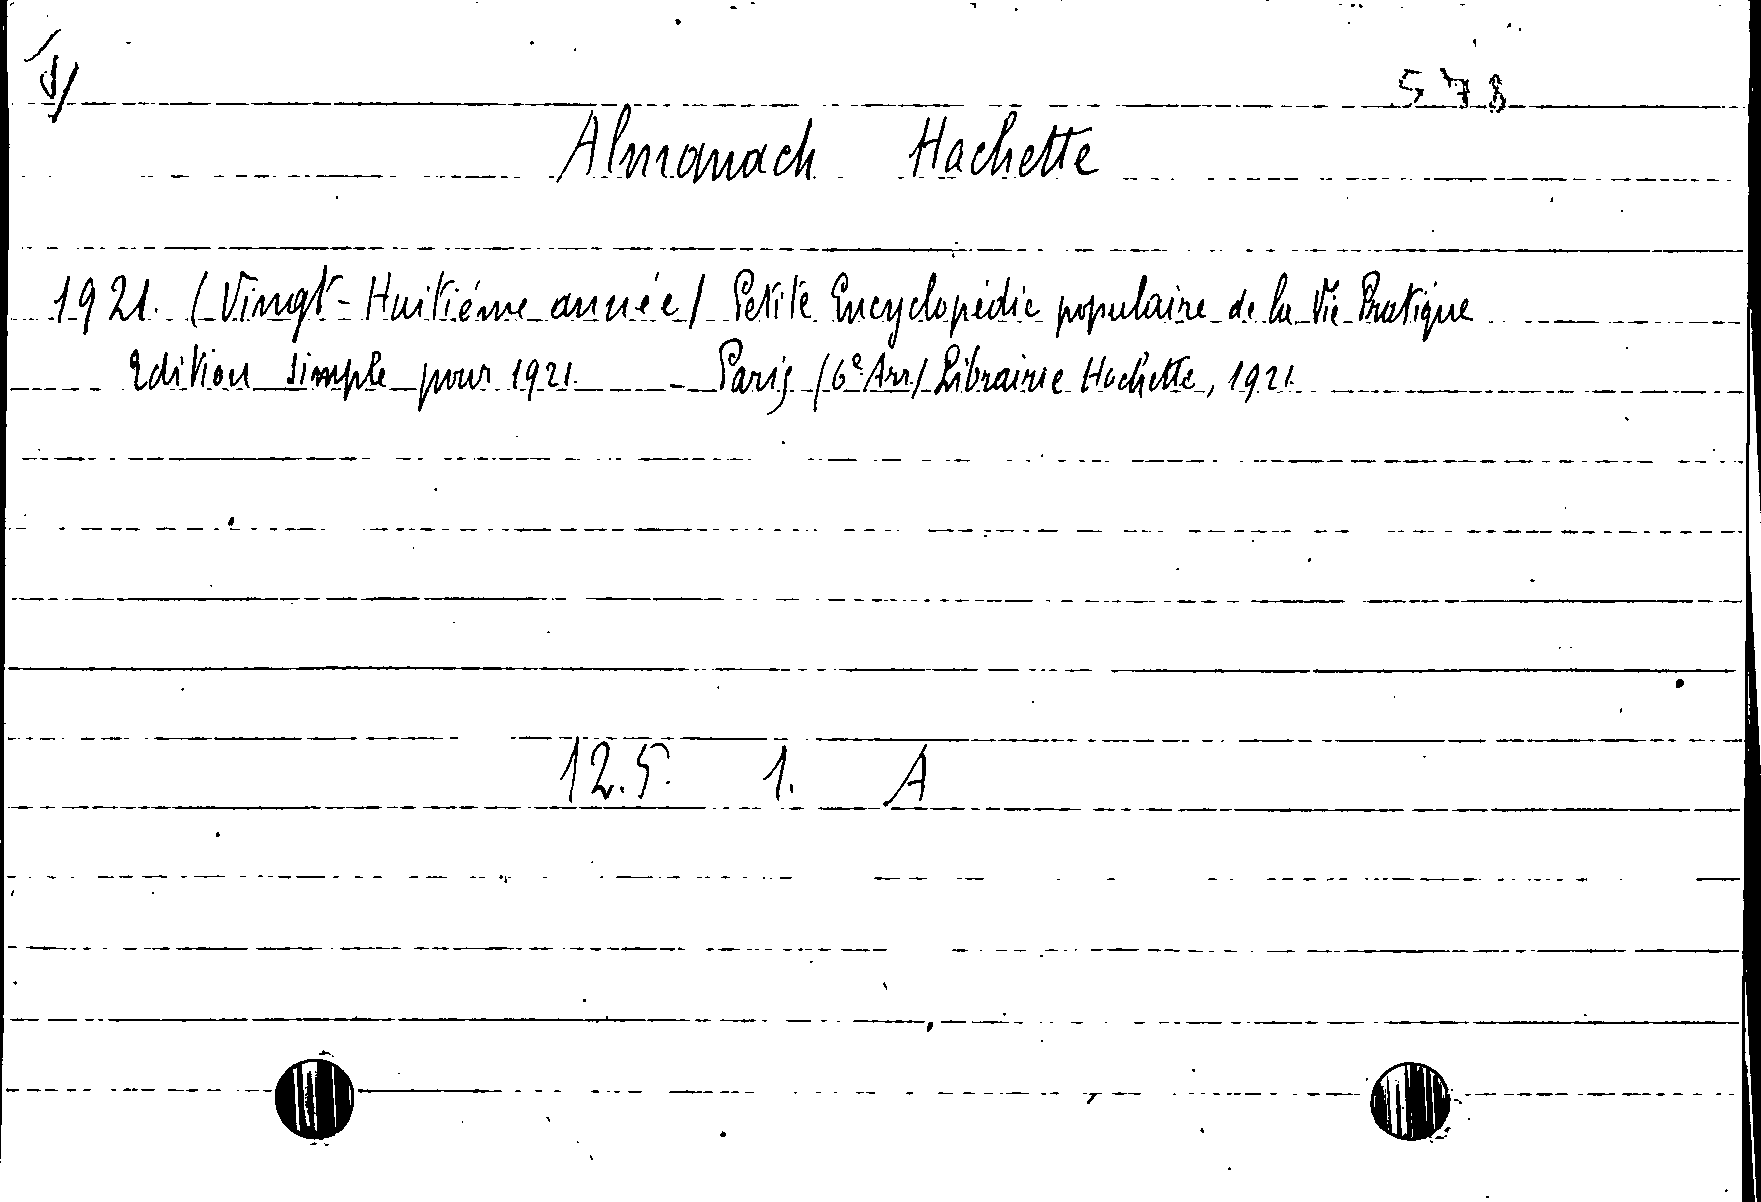 578
Almanach Hachette
1921. (Vingt-Huitiéme année) Petite Encyclopédie populaire de la Vie Pratique
Edition simple pour 1921 - Paris (6e Arr) Librairie Hachette, 1921
12.5. 1. A